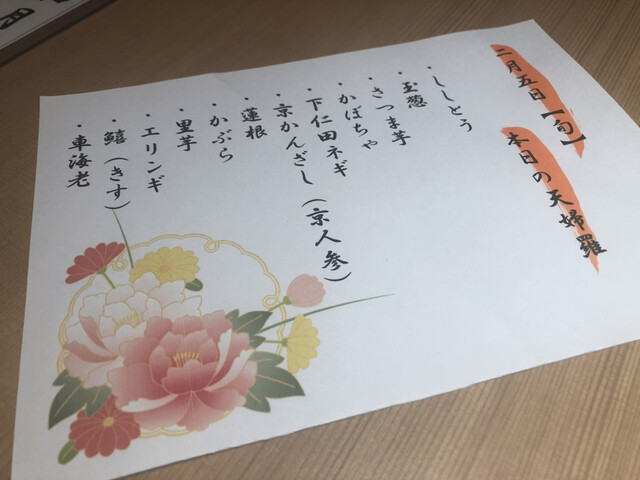 二月五日【旬】
本日の天婦羅
・ししとう
・玉葱
・さつま芋
・かぼちゃ
・下仁田ネギ
・京かんざし（京人参）
・蓮根
・かぶら
・里芋
・エリンギ
・鱚（きす）
・車海老